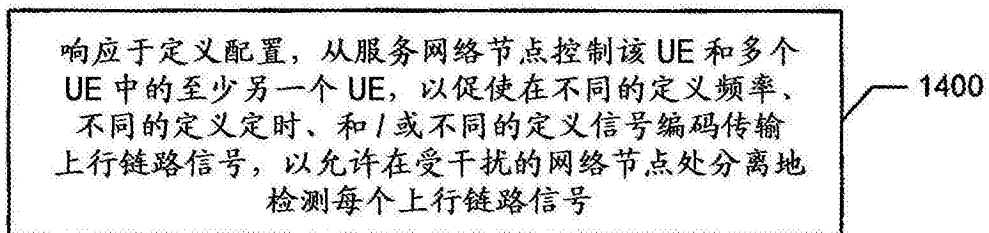 响应于定义配置，从服务网络节点控制该 UE 和多个
UE 中的至少另一个 UE，以促使在不同的定义频率、
不同的定义定时、和 / 或不同的定义信号编码传输
上行链路信号，以允许在受干扰的网络节点处分离地
检测每个上行链路信号
1400